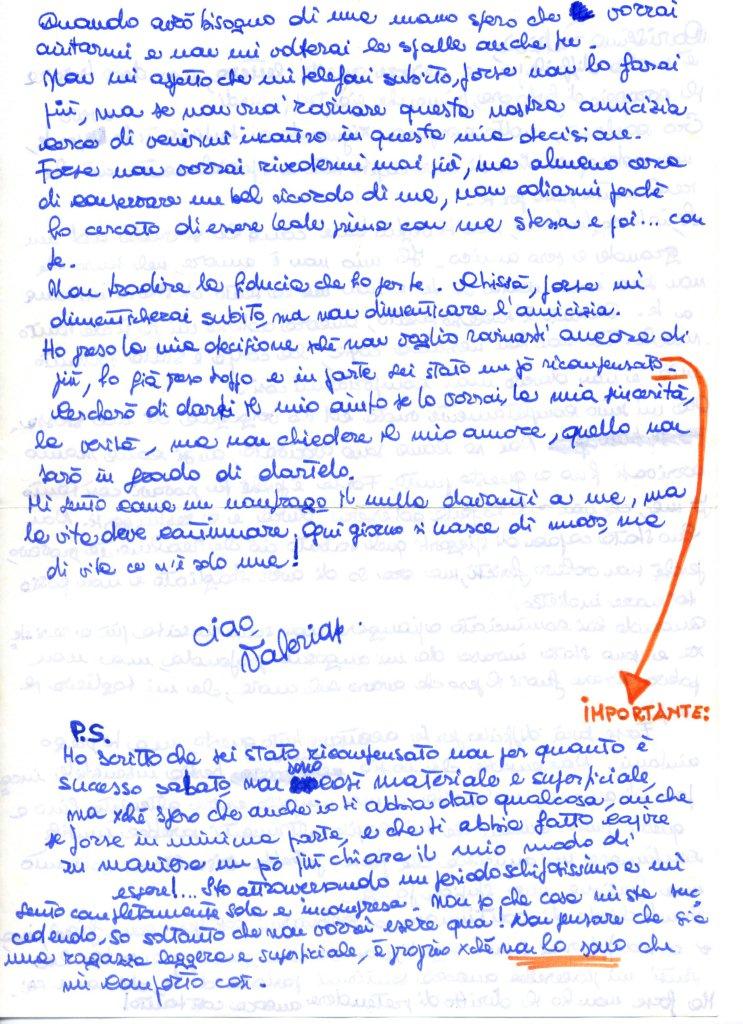 Quando avrò bisogno di una mano spero che vorrai
aiutarmi e non mi volterai le spalle anche tu.
Non mi aspetto che mi telefoni subito, forse non lo farai
più, ma se non vuoi rovinare questa nostra amicizia
cerca di venirmi incontro in questa mia decisione.
Forse non vorrai rivedermi mai più, ma almeno cerca
di conservare un bel ricordo di me, non odiarmi perchè
ho cercato di essere leale prima con me stessa e poi... con
te.
Non tradire la fiducia che ho per te. Chissà, forse mi
dimenticherai subito, ma non dimenticare l'amicizia.
Ho preso la mia decisione xchè non voglio rovinarti ancora di
più, ho già preso troppo e in parte sei stato un pò ricompensato.
Cercherò di darti il mio aiuto se lo vorrai, la mia sincerità,
la verità, ma non chiedere il mio amore, quello non
sarò in grado di dartelo.
Mi sento come un naufrago il nulla davanti a me, ma
la vita deve continuare, ogni giorno si nasce di nuovo, ma
di vita ce n'è solo una!
Ciao
Valeria
IMPORTANTE:
P.S.
Ho scritto che sei stato ricompensato non per quanto è
successo sabato, non sono così materiale e superficiale,
ma xchè spero che anche io ti abbia dato qualcosa, anche
se forse in minima parte, e che ti abbia fatto capire
in maniera un pò più chiara il mio modo di
essere!... Sto attraversando un periodo schifosissimo e mi
sento completamente sola e incompresa. Non so che cosa mi sta suc
cedendo, so soltanto che non vorrei essere qua! Non pensare che sia
una ragazza leggera e superficiale, è proprio xchè non lo sono che
mi comporto così.